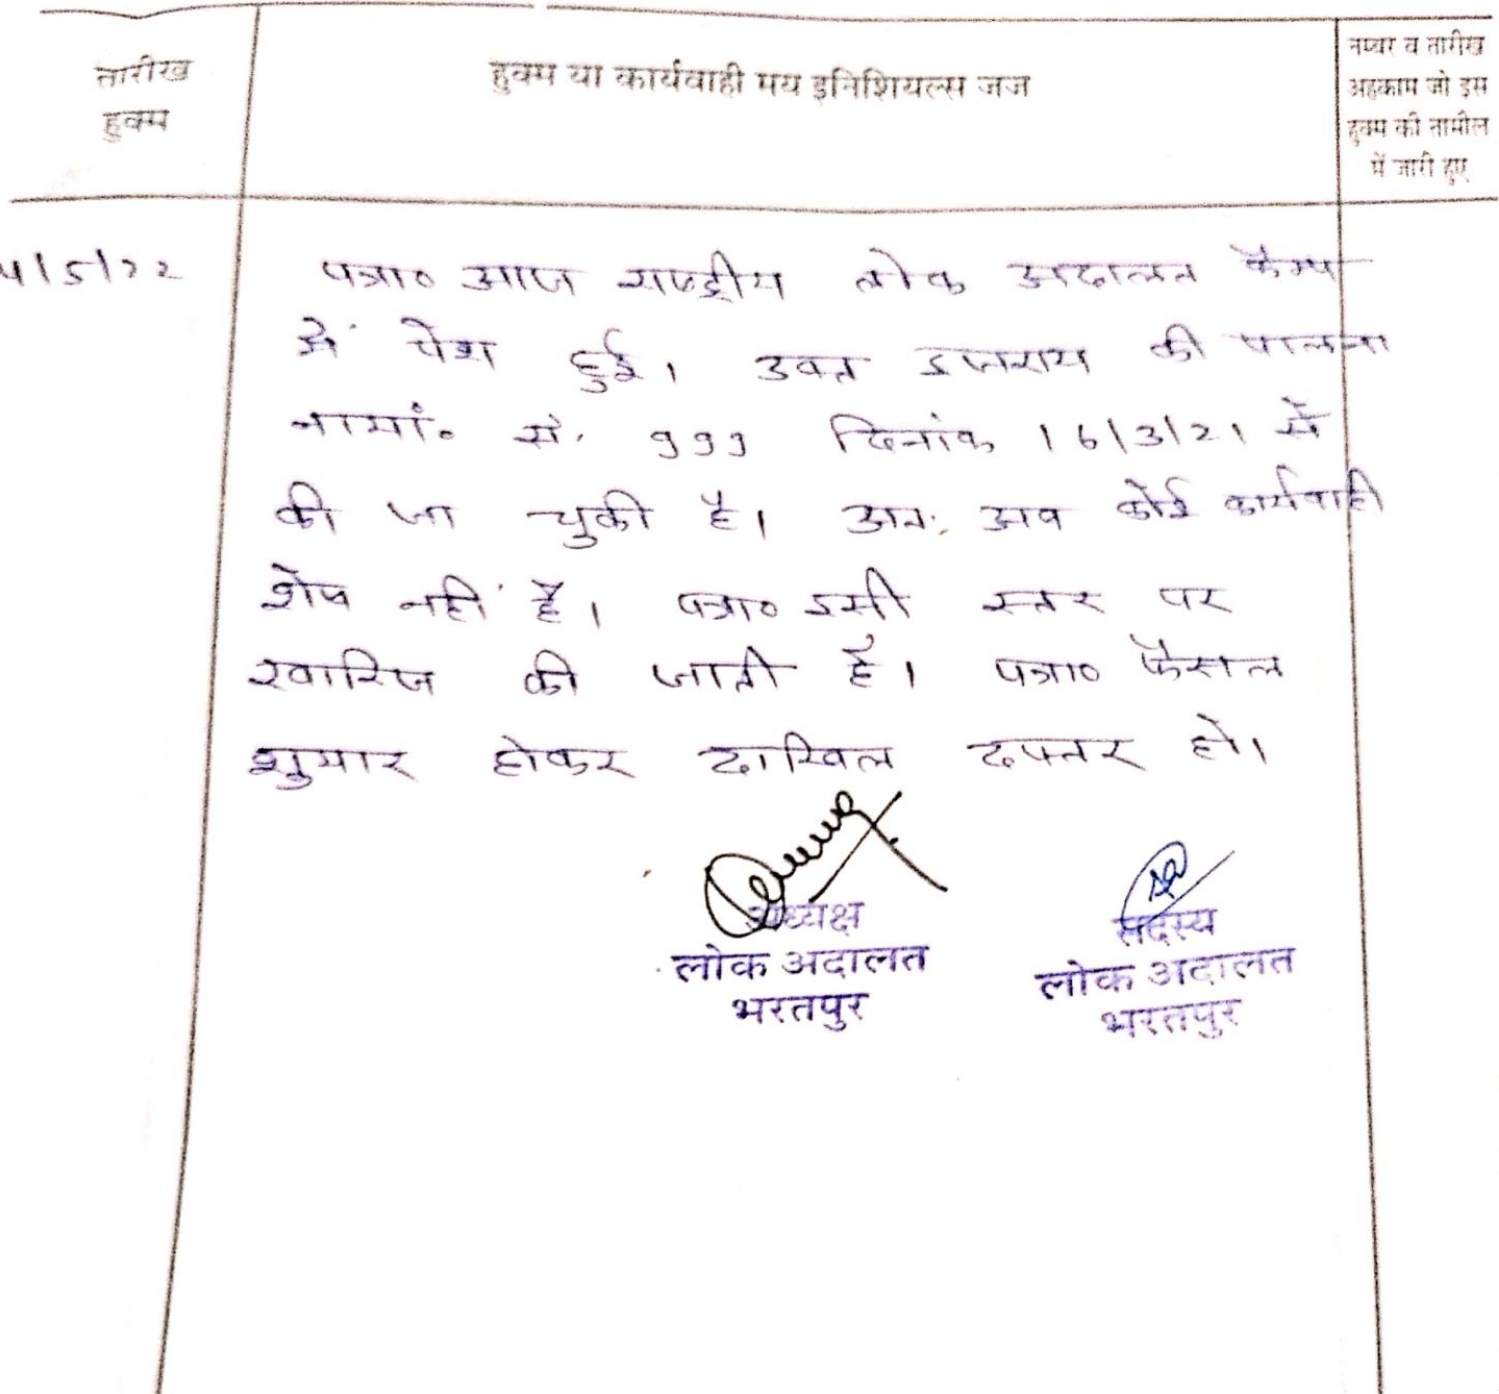 तारीख
हुक्म
हुक्म या कार्यवाही मय इनिशियल्स जज
नम्बर व तारीख
अहकाम जो इस
हुक्म की तामील
में जारी हुए
4/5/22 पत्रा० आज राष्ट्रीय लोक अदालत कैम्प
में पेश हुई। उक्त इजराय की पालना
नामां० सं. 999 दिनांक 16/3/21 से
की जा चुकी है। अतः अब कोई कार्यवाही
शेष नहीं है। पत्रा० इसी स्तर पर
खारिज की जाती है। पत्रा० फैसल
शुमार होकर दाखिल दफ्तर हो।
अध्यक्ष
लोक अदालत
भरतपुर
सदस्य
लोक अदालत
भरतपुर